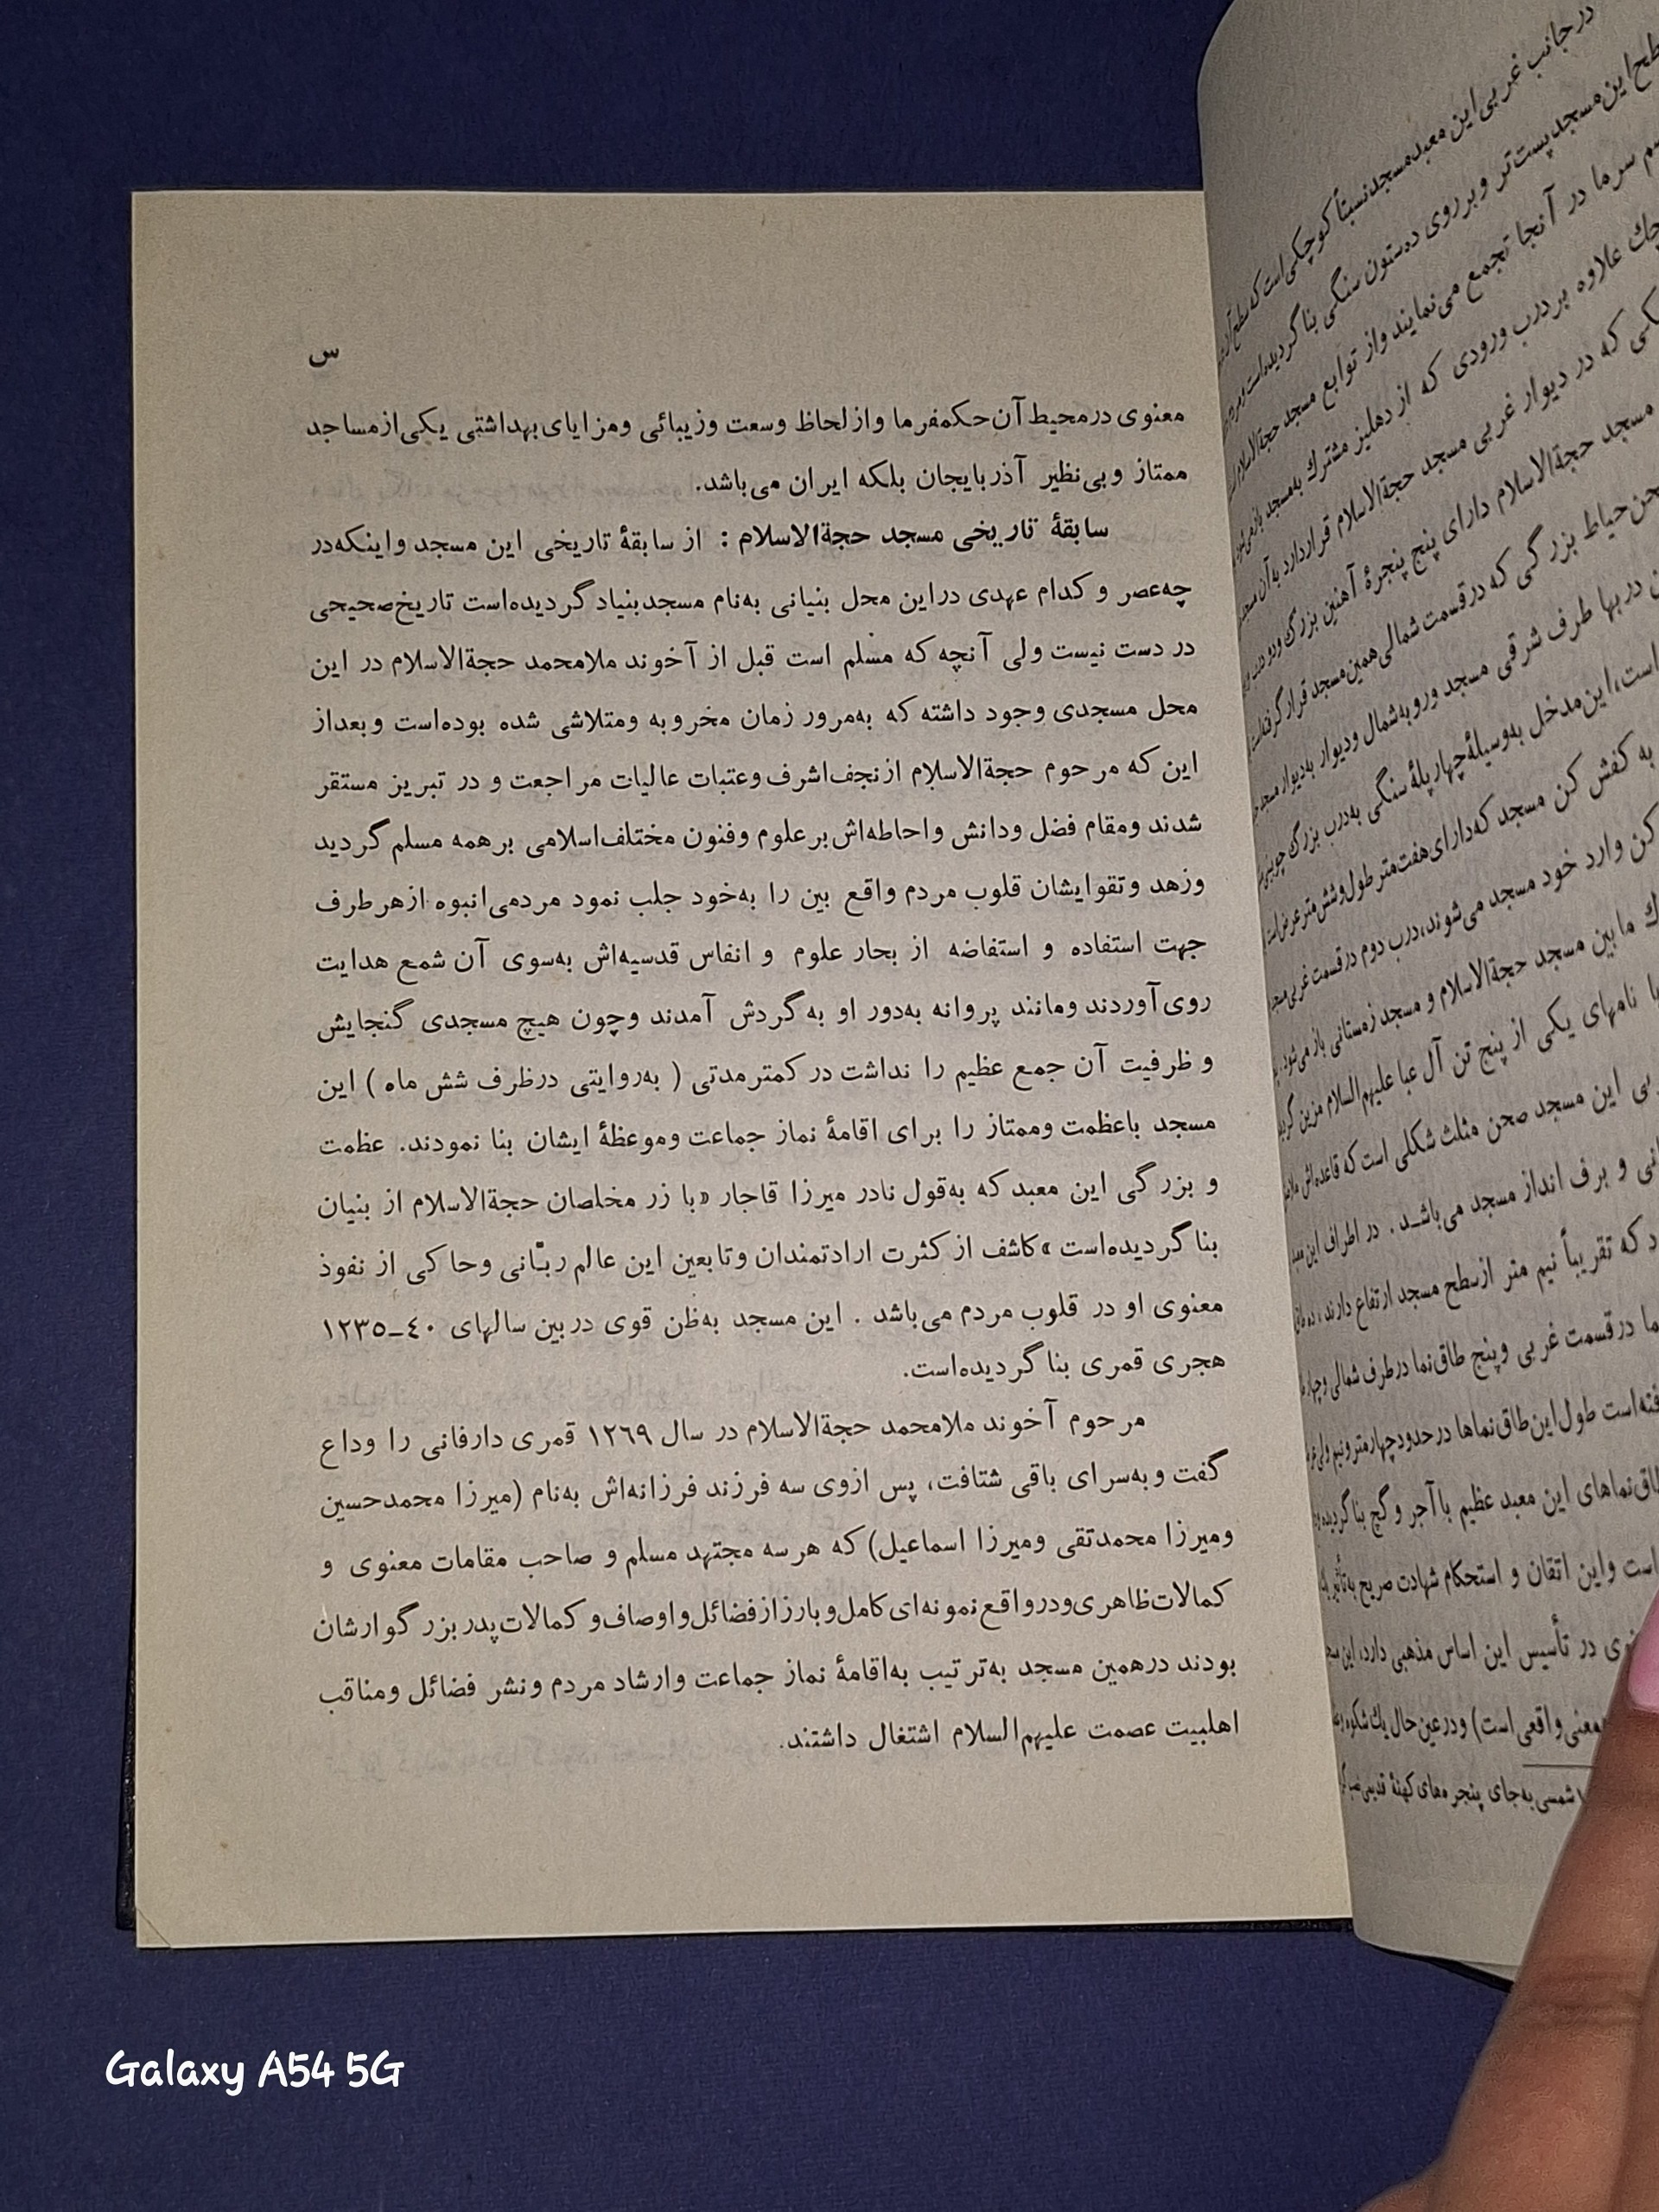 س
معنوی درمحیط آن حکمفرما و از لحاظ وسعت وزیبائی ومزایای بهداشتی یکی از مساجد
ممتاز وبی‌نظیر آذربایجان بلکه ایران می‌باشد.
سابقهٔ تاریخی مسجد حجةالاسلام : از سابقهٔ تاریخی این مسجد واینکه در
چه‌عصر و کدام عهدی دراین محل بنیانی به‌نام مسجدبنیاد گردیده‌است تاریخ صحیحی
در دست نیست ولی آنچه که مسلم است قبل از آخوند ملامحمد حجةالاسلام در این
محل مسجدی وجود داشته که به‌مرور زمان مخروبه ومتلاشی شده بوده‌است وبعداز
این که مرحوم حجةالاسلام ازنجف‌اشرف وعتبات عالیات مراجعت و در تبریز مستقر
شدند ومقام فضل ودانش واحاطه‌اش برعلوم وفنون مختلف‌اسلامی برهمه مسلم گردید
وزهد وتقوایشان قلوب مردم واقع بین را به‌خود جلب نمود مردمی‌انبوه ازهرطرف
جهت استفاده و استفاضه از بحار علوم و انفاس قدسیه‌اش به‌سوی آن شمع هدایت
روی‌آوردند ومانند پروانه به‌دور او به گردش آمدند وچون هیچ مسجدی گنجایش
و ظرفیت آن جمع عظیم را نداشت در کمترمدتی ( به‌روایتی درظرف شش ماه ) این
مسجد باعظمت وممتاز را برای اقامهٔ نماز جماعت وموعظهٔ ایشان بنا نمودند. عظمت
و بزرگی این معبد که به‌قول نادر میرزا قاجار «با زر مخلصان حجةالاسلام از بنیان
بنا گردیده‌است» کاشف از کثرت ارادتمندان وتابعین این عالم ربّانی وحاکی از نفوذ
معنوی او در قلوب مردم می‌باشد . این مسجد به‌ظن قوی دربین سالهای ۴۰–۱۲۳۵
هجری قمری بنا گردیده‌است.
مرحوم آخوند ملامحمد حجةالاسلام در سال ۱۲۶۹ قمری دارفانی را وداع
گفت و به‌سرای باقی شتافت، پس ازوی سه فرزند فرزانه‌اش به‌نام (میرزا محمدحسین
ومیرزا محمدتقی ومیرزا اسماعیل) که هرسه مجتهد مسلم و صاحب مقامات معنوی و
کمالات ظاهری ودرواقع نمونه‌ای کامل وبارز از فضائل واوصاف و کمالات پدربزرگوارشان
بودند درهمین مسجد به‌ترتیب به‌اقامهٔ نماز جماعت وارشاد مردم ونشر فضائل ومناقب
اهلبیت عصمت علیهم‌السلام اشتغال داشتند.
در جانب غربی این معبد مسجد نسبتاً کوچکی است که
این مسجد پست‌تر وبر روی ده ستون سنگی بنا گردیده‌است
سرما در آنجا تجمع می‌نمایند واز توابع مسجد حجةالاسلام
علاوه بر درب ورودی که از دهلیز مشترك به مسجد باز می‌شود
که در دیوار غربی مسجد حجةالاسلام قرار دارد به آن مسجد
مسجد حجةالاسلام دارای پنج پنجرهٔ آهنین بزرگ
حیاط بزرگی که درقسمت شمالی همین مسجد قرار گرفته‌است
دربها طرف شرقی مسجد ورو به‌شمال ودیوار به‌دیوار مسجد
است، این‌مدخل به‌وسیلهٔ چهارپلهٔ سنگی به‌درب بزرگ چوبی
به کفش کن مسجد که‌دارای هفت متر طول وشش متر عرض است
کن وارد خود مسجد می‌شوند، درب دوم درقسمت غربی مسجد
مابین مسجد حجةالاسلام و مسجد زمستانی باز می‌شود،
نامهای یکی از پنج تن آل عبا علیهم‌السلام مزین
این مسجد صحن مثلث شکلی است که قاعده‌اش
و برف انداز مسجد می‌باشد . در اطراف این
که تقریباً نیم متر از سطح مسجد ارتفاع دارند،
درقسمت غربی وپنج طاق‌نما درطرف شمالی
است طول این طاق‌نماها در حدود چهارمترونیم
طاق‌نماهای این معبد عظیم با آجر و گچ بنا گردیده
است واین اتقان و استحکام شهادت صریح
در تأسیس این اساس مذهبی دارد، این
معنی واقعی است) ودرعین حال یك شکوه
شمسی به‌جای پنجره‌های کهنهٔ قدیمی
Galaxy A54 5G